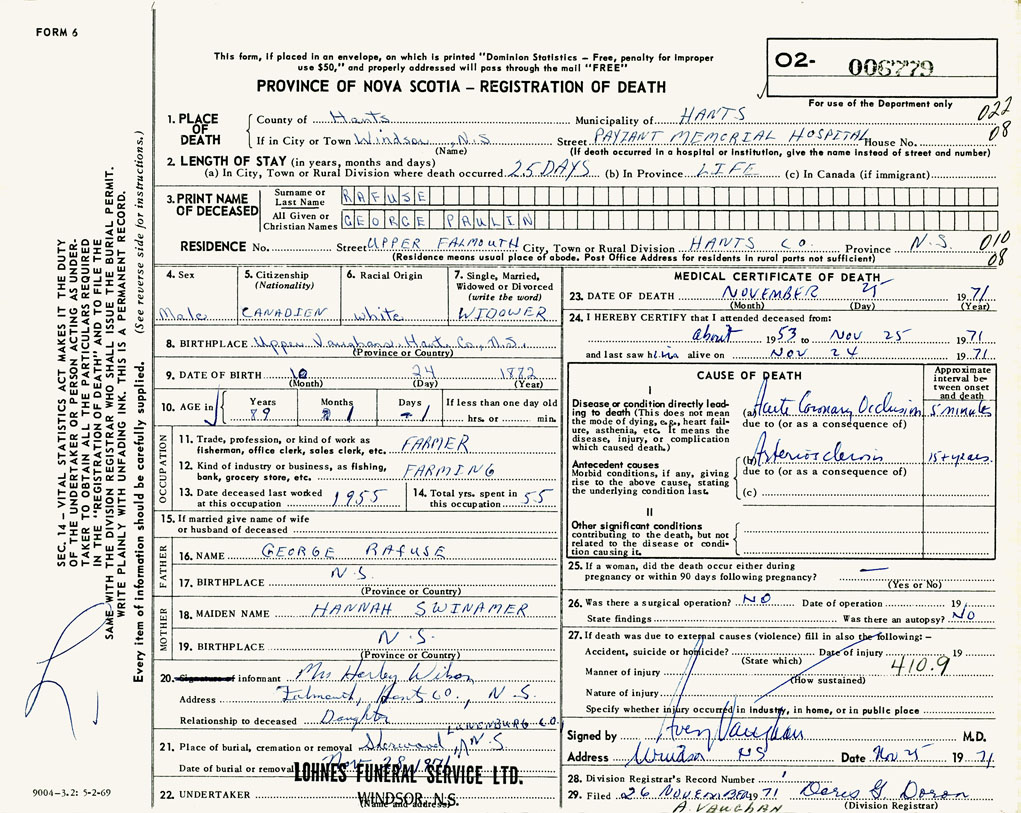 FORM 6
This form, if placed in an envelope, on which is printed "Dominion Statistics – Free, penalty for improper
use $50," and properly addressed will pass through the mail "FREE"
PROVINCE OF NOVA SCOTIA – REGISTRATION OF DEATH
02- 006779
For use of the Department only
022
08
1. PLACE OF DEATH
County of Hants Municipality of HANTS
If in City or Town Windsor, N.S Street PAYZANT MEMORIAL HOSPITAL House No.
(Name) (If death occurred in a hospital or institution, give the name instead of street and number)
2. LENGTH OF STAY (in years, months and days)
(a) In City, Town or Rural Division where death occurred 25 DAYS (b) In Province LIFE (c) In Canada (if immigrant)
3. PRINT NAME OF DECEASED
Surname or Last Name RAFUSE
All Given or Christian Names GEORGE PAULIN
RESIDENCE No. Street UPPER FALMOUTH City, Town or Rural Division HANTS CO. Province N.S.
(Residence means usual place of abode. Post Office Address for residents in rural parts not sufficient)
010
08
4. Sex
Male
5. Citizenship
(Nationality)
CANADIEN
6. Racial Origin
white
7. Single, Married,
Widowed or Divorced
(write the word)
WIDOWER
8. BIRTHPLACE Upper Vaughans, Hants Co., N.S.
(Province or Country)
9. DATE OF BIRTH 10 24 1882
(Month) (Day) (Year)
10. AGE in
Years Months Days If less than one day old
89 1 1 hrs. or min.
OCCUPATION
11. Trade, profession, or kind of work as
fisherman, office clerk, sales clerk, etc. FARMER
12. Kind of industry or business, as fishing,
bank, grocery store, etc. FARMING
13. Date deceased last worked
at this occupation 1955
14. Total yrs. spent in
this occupation 55
15. If married give name of wife
or husband of deceased
FATHER
16. NAME GEORGE RAFUSE
17. BIRTHPLACE N.S.
(Province or Country)
MOTHER
18. MAIDEN NAME HANNAH SWINAMER
19. BIRTHPLACE N.S.
(Province or Country)
20. Signature of informant Mrs Harley Wilson
Address Falmouth, Hants Co, N.S.
Relationship to deceased Daughter
21. Place of burial, cremation or removal Sherwood, LUNENBURG CO. N.S
Date of burial or removal Nov. 28, 1971
22. UNDERTAKER LOHNES FUNERAL SERVICE LTD.
WINDSOR, N.S.
(Name and address)
MEDICAL CERTIFICATE OF DEATH
23. DATE OF DEATH NOVEMBER 25 1971
(Month) (Day) (Year)
24. I HEREBY CERTIFY that I attended deceased from:
about 1953 to Nov 25 1971
and last saw him alive on Nov 24 1971
CAUSE OF DEATH
Approximate
interval be-
tween onset
and death
I
Disease or condition directly lead-
ing to death (This does not mean
the mode of dying, e.g., heart fail-
ure, asthenia, etc. It means the
disease, injury, or complication
which caused death.)
(a) Acute Coronary Occlusion 5 minutes
due to (or as a consequence of)
Antecedent causes
Morbid conditions, if any, giving
rise to the above cause, stating
the underlying condition last.
(b) Arteriosclerosis 15+ years.
due to (or as a consequence of)
(c)
II
Other significant conditions
contributing to the death, but not
related to the disease or condi-
tion causing it.
25. If a woman, did the death occur either during
pregnancy or within 90 days following pregnancy? —
(Yes or No)
26. Was there a surgical operation? NO Date of operation 19
State findings Was there an autopsy? NO
27. If death was due to external causes (violence) fill in also the following:–
Accident, suicide or homicide? Date of injury 19
(State which)
Manner of injury 410.9
(How sustained)
Nature of injury
Specify whether injury occurred in industry, in home, or in public place
Signed by Avery Vaughan M.D.
Address Windsor NS Date Nov 25 1971
28. Division Registrar's Record Number 1
29. Filed 26 NOVEMBER 1971 Doris G. Doran
A. VAUGHAN (Division Registrar)
SEC. 14 – VITAL STATISTICS ACT MAKES IT THE DUTY
OF THE UNDERTAKER OR PERSON ACTING AS UNDER-
TAKER TO OBTAIN ALL THE PARTICULARS REQUIRED
IN THE "REGISTRATION OF DEATH" AND TO FILE THE
SAME WITH THE DIVISION REGISTRAR WHO SHALL ISSUE THE BURIAL PERMIT.
WRITE PLAINLY WITH UNFADING INK. THIS IS A PERMANENT RECORD.
Every item of information should be carefully supplied. (See reverse side for instructions.)
9004-3.2: 5-2-69